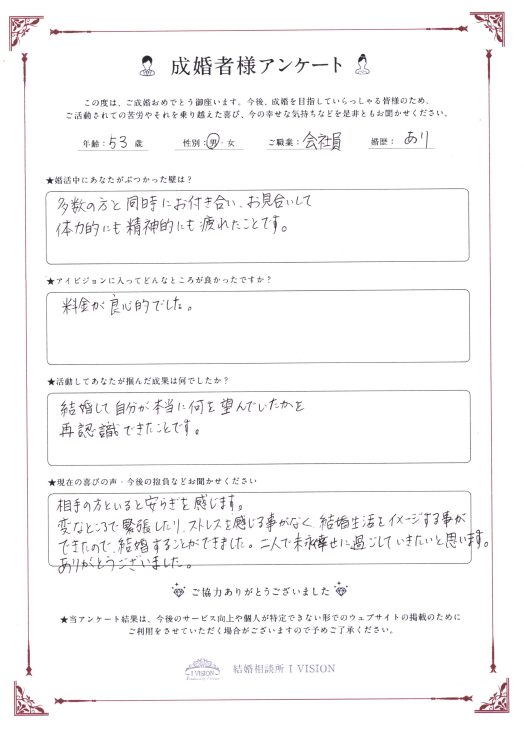 成婚者様アンケート
この度は、ご成婚おめでとう御座います。今後、成婚を目指していらっしゃる皆様のため、
ご活動されての苦労やそれを乗り越えた喜び、今の幸せな気持ちなどを是非ともお聞かせください。
年齢：53 歳　性別：男・女　ご職業：会社員　婚歴：あり
★婚活中にあなたがぶつかった壁は？
多数の方と同時にお付き合い、お見合いして
体力的にも精神的にも疲れたことです。
★アイビジョンに入ってどんなところが良かったですか？
料金が良心的でした。
★活動してあなたが掴んだ成果は何でしたか？
結婚して自分が本当に何を望んでいたかを
再認識できたことです。
★現在の喜びの声・今後の抱負などお聞かせください
相手の方といると安らぎを感じます。
変なところで緊張したり、ストレスを感じる事がなく、結婚生活をイメージする事が
できたので、結婚することができました。二人で末永く幸せに過ごしていきたいと思います。
ありがとうございました。
ご協力ありがとうございました
★当アンケート結果は、今後のサービス向上や個人が特定できない形でのウェブサイトの掲載のために
ご利用をさせていただく場合がございますので予めご了承ください。
I VISION
結婚相談所 I VISION